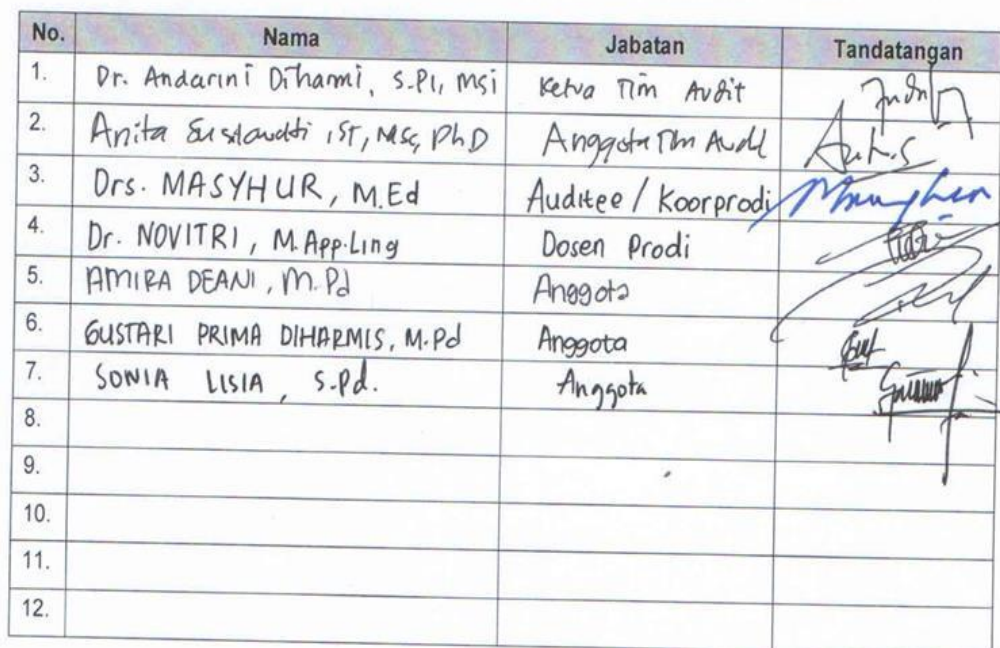 No. Nama Jabatan Tandatangan
1. Dr. Andarini Diharmi, S.PI, MSi Ketua Tim Audit
2. Anita ,ST, MSc, PhD Anggota Tim Audit
3. Drs. MASYHUR, M.Ed Auditee / Koorprodi
4. Dr. NOVITRI, M.App.Ling Dosen Prodi
5. AMIRA DEANI, M.Pd Anggota
6. GUSTARI PRIMA DIHARMIS, M.Pd Anggota
7. SONIA LISIA, S.Pd. Anggota
8.
9.
10.
11.
12.